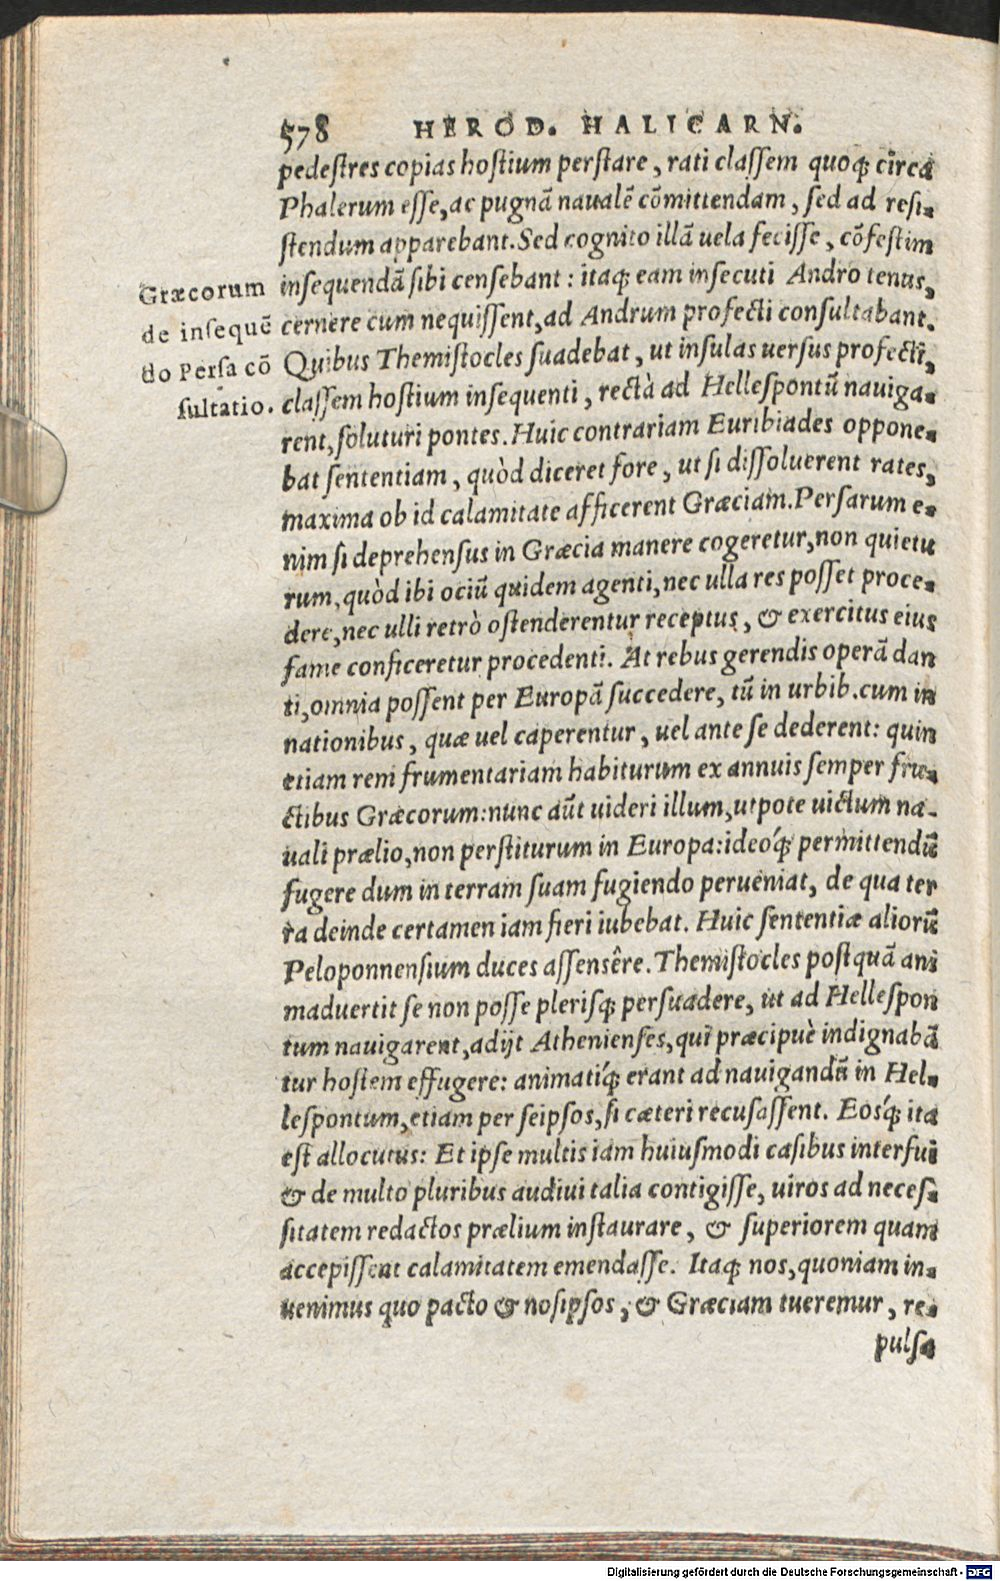 578 HEROD. HALICARN.
pedestres copias hostium perstare, rati classem quoq; circa
Phalerum esse, ac pugnā naualē cōmittendam, sed ad resi-
stendum apparebant. Sed cognito illā uela fecisse, cōfestim
insequendā sibi censebant: itaq; eam insecuti Andro tenus,
cernere cum nequissent, ad Andrum profecti consultabant.
Quibus Themistocles suadebat, ut insulas uersus profecti,
classem hostium insequenti, rectà ad Hellespontū nauiga-
rent, soluturi pontes. Huic contrariam Euribiades oppone-
bat sententiam, quòd diceret fore, ut si dissoluerent rates,
maxima ob id calamitate afficerent Græciam. Persarum e-
nim si deprehensus in Græcia manere cogeretur, non quietu
rum, quòd ibi ociū quidem agenti, nec ulla res posset proce-
dere, nec ulli retrò ostenderentur receptus, & exercitus eius
fame conficeretur procedenti. At rebus gerendis operā dan
ti, omnia possent per Europā succedere, tū in urbib. cum in
nationibus, quæ uel caperentur, uel ante se dederent: quin
etiam rem frumentariam habiturum ex annuis semper fru-
ctibus Græcorum: nunc aūt uideri illum, utpote uictum na-
uali prælio, non perstiturum in Europa: ideoq́; permittendū
fugere dum in terram suam fugiendo perueniat, de qua ter
ra deinde certamen iam fieri iubebat. Huic sententiæ aliorū
Peloponnensium duces assensêre. Themistocles postquā ani
maduertit se non posse plerisq; persuadere, ut ad Hellespon
tum nauigarent, adijt Athenienses, qui præcipuè indignabā
tur hostem effugere: animatiq́; erant ad nauigandū in Hel-
lespontum, etiam per seipsos, si cæteri recusassent. Eosq́; ita
est allocutus: Et ipse multis iam huiusmodi casibus interfui
& de multo pluribus audiui talia contigisse, uiros ad neces-
sitatem redactos prælium instaurare, & superiorem quam
accepissent calamitatem emendasse. Itaq; nos, quoniam in-
uenimus quo pacto & nosipsos, & Græciam tueremur, re-
pulsa
Græcorum
de insequē
do Persa cō
sultatio.
Digitalisierung gefördert durch die Deutsche Forschungsgemeinschaft - DFG